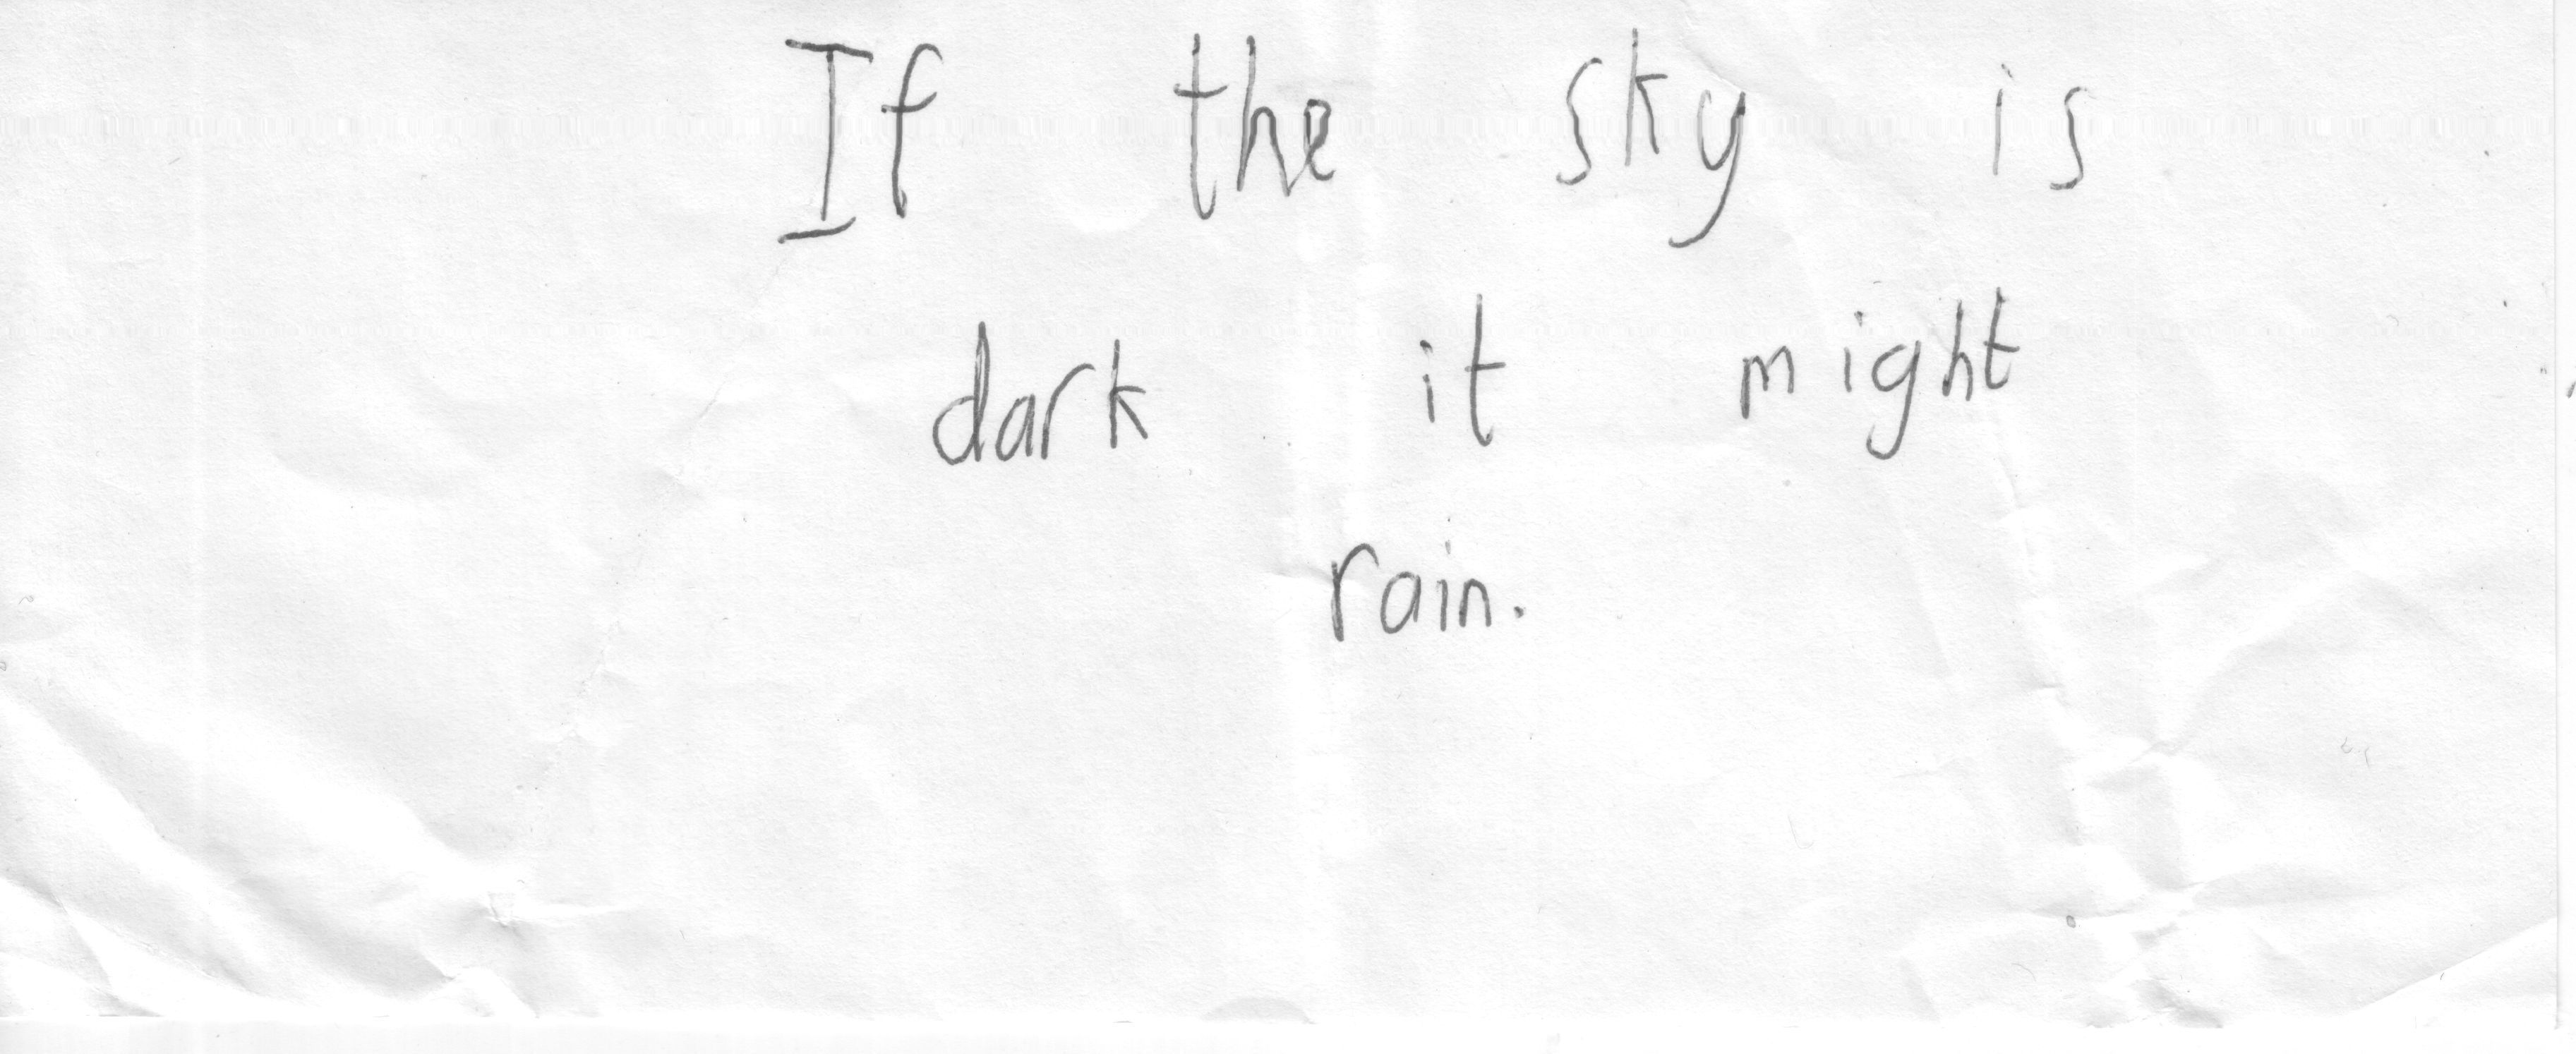 If the sky is
dark it might
rain.